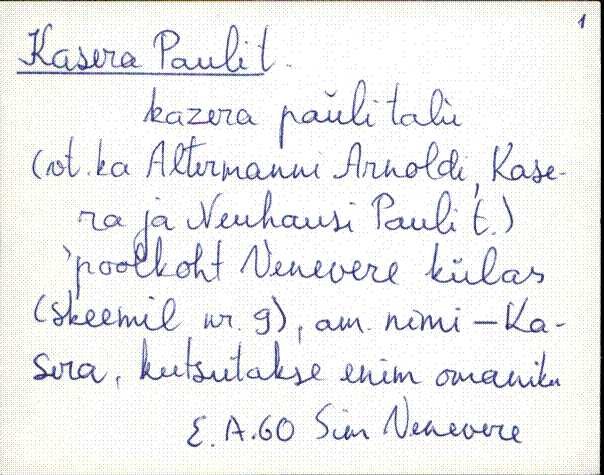 1
Kasera Pauli t.
kazera pau̬li talù
(vt. ka Altermanni Arnoldi, Kase-
ra ja Neuhausi Pauli t.)
`poolkoht Venevere külas
(skeemil nr. 9), am. nimi – Ka-
sera, kutsutakse enim omaniku
E. A. 60 Sim Venevere